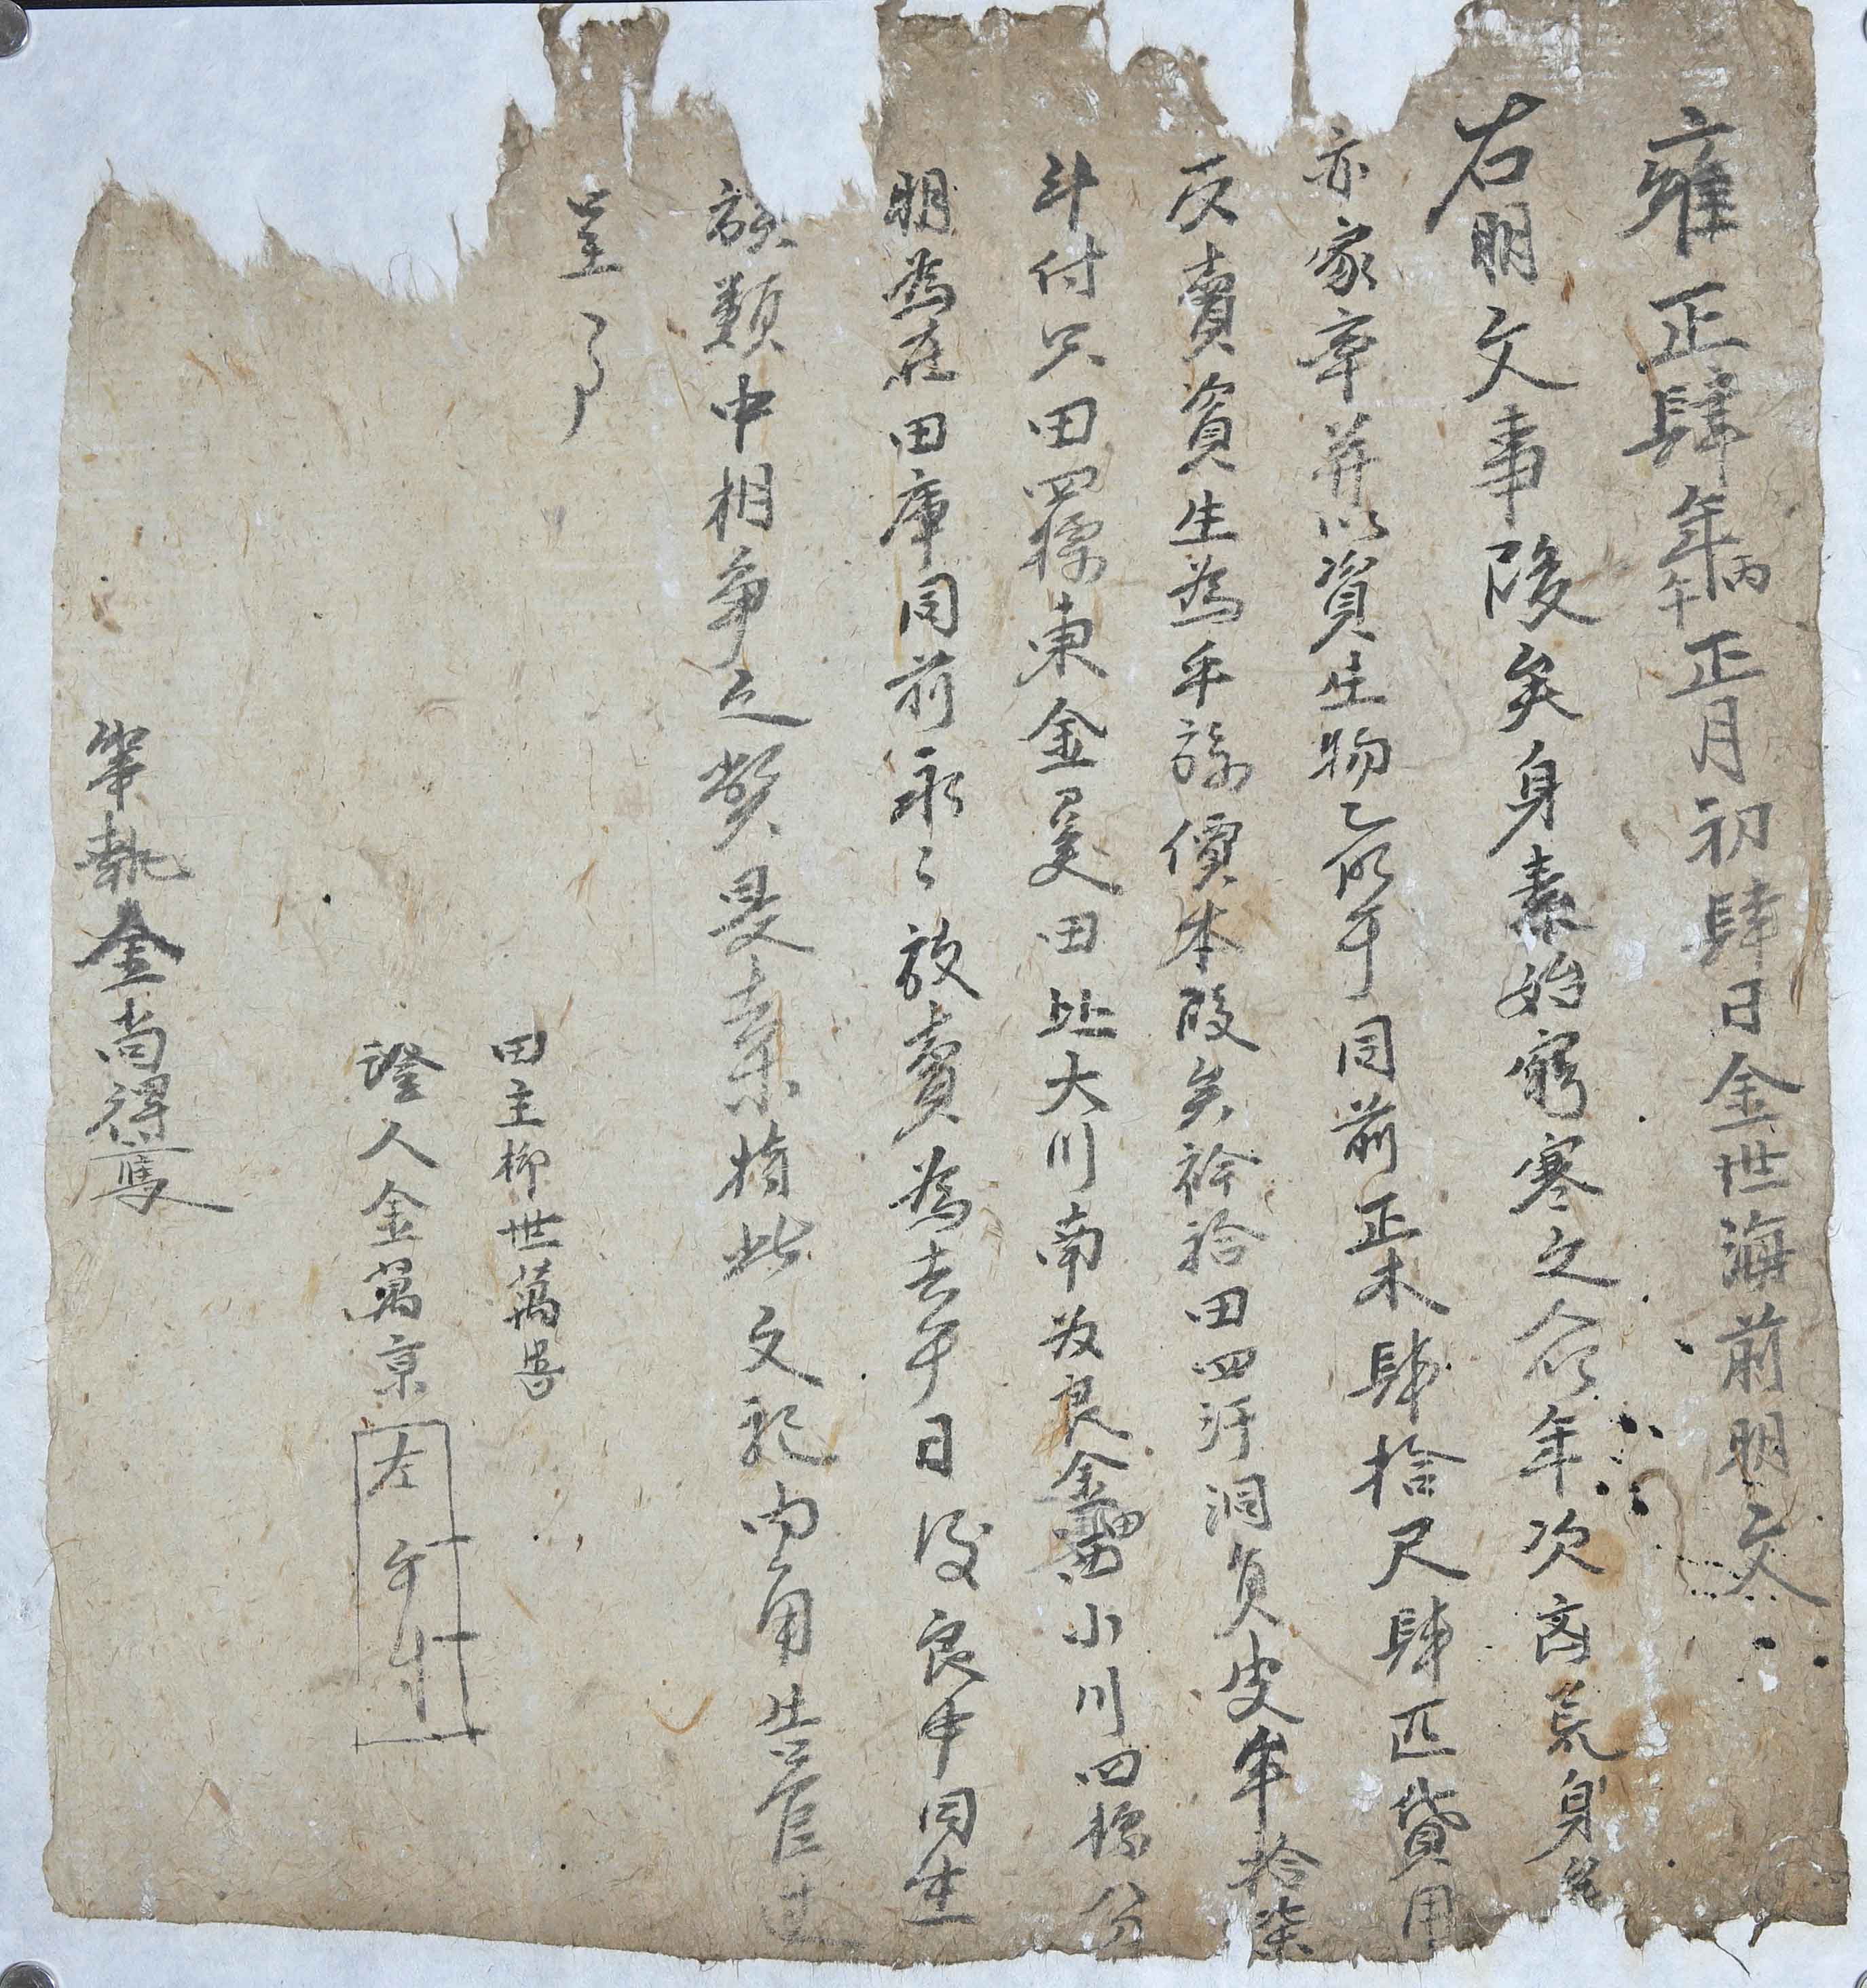 雍正肆年丙午正月初肆日金世海前明文
右明文事段矣身素始窮寒之人以年次凶荒身
亦家率并以資生物乙所于同前正木肆拾尺肆匹貸用
反賣資生為乎旀價本段矣衿拾田四汗洞負皮牟拾柒
斗付只田四標東金田北大川南為良金小川四標分
明為在田庫同前永〻放賣為去乎日後良中同生
族類中相爭之弊是去等持此文記內用告官
呈丁
田主柳世萬
證人金萬京左午寸
筆執金尚得